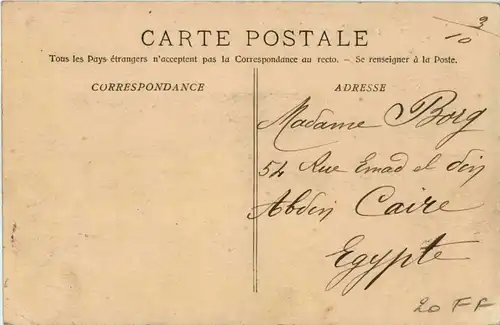 3
10
CARTE POSTALE
Tous les Pays étrangers n'acceptent pas la Correspondance au recto. – Se renseigner à la Poste.
CORRESPONDANCE
ADRESSE
Madame Borg
54 Rue Emad el din
Abdin Caire
Egypte
20 FF